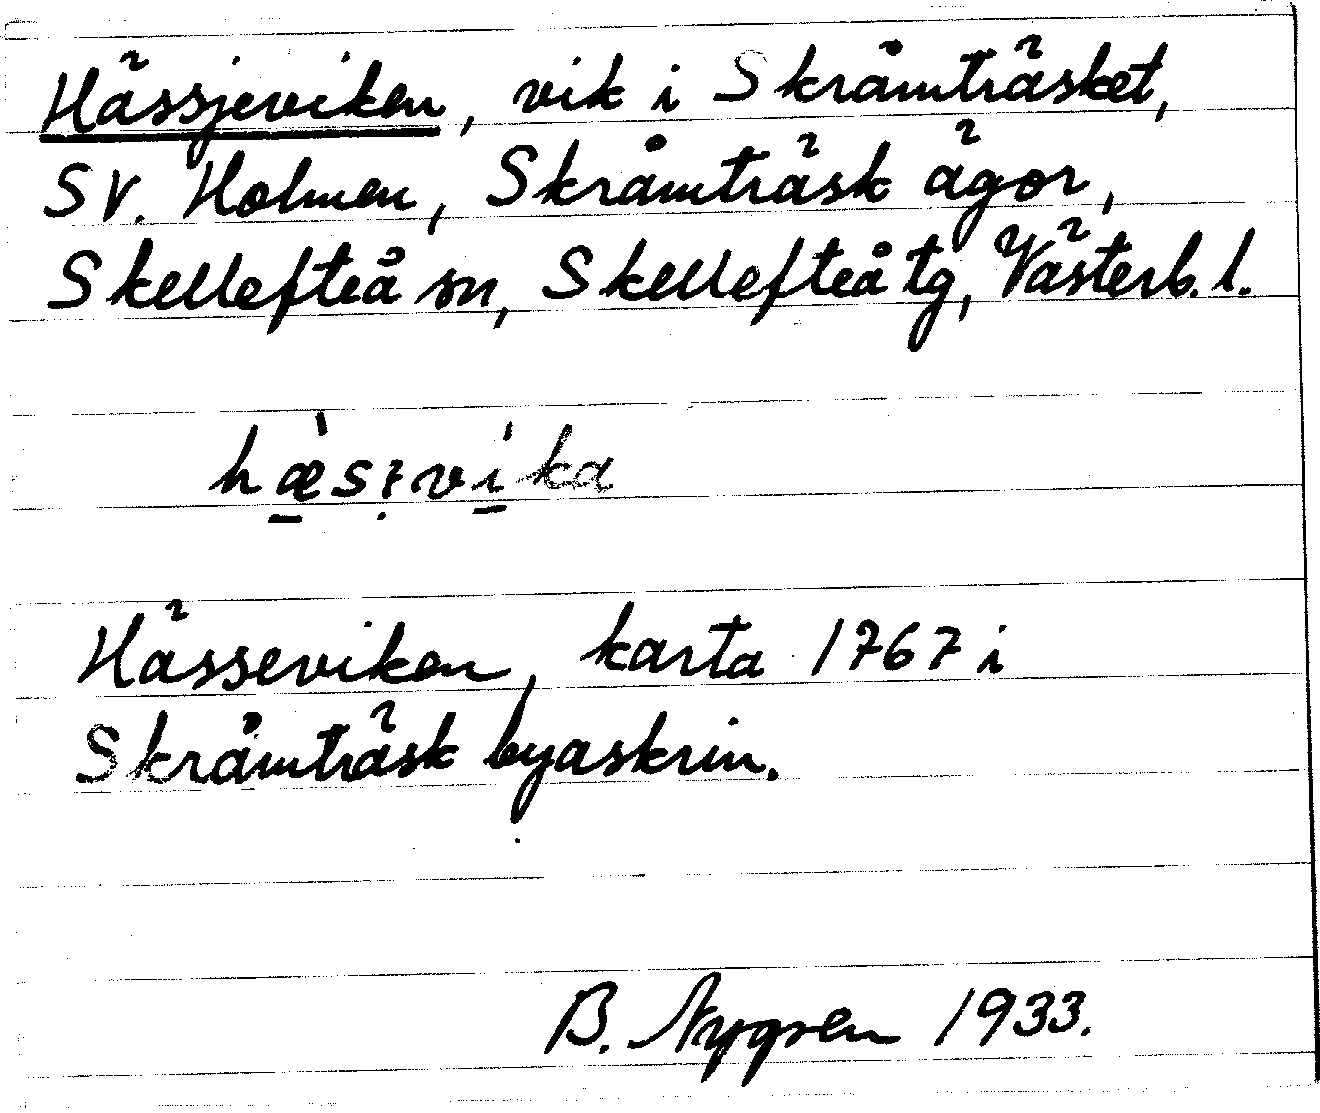 Hässjeviken, vik i Skråmträsket,
SV. Holmen, Skråmträsk ägor,
Skellefteå sn, Skellefteå tg, Västerb. l.
Hässeviken, karta 1767 i
Skråmträsk byaskrin.
B. Nygren 1933.